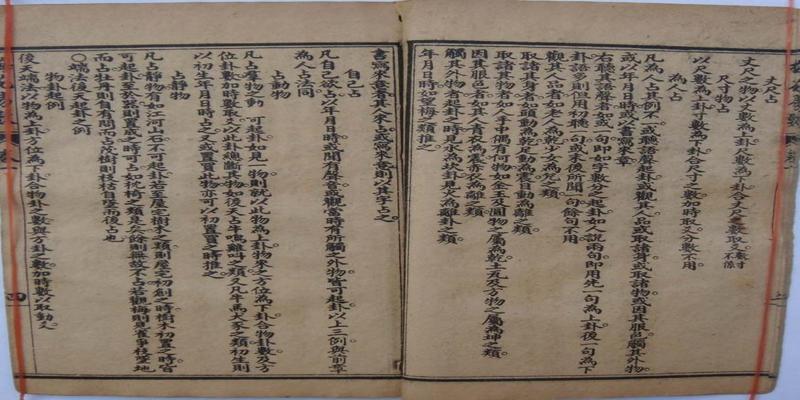 丈尺占
丈尺之物以丈數為上卦尺數為下卦合丈尺之數取爻數寸不係
尺寸物占
以尺數為上卦寸數為下卦合尺寸之數加時取爻分數不用
為人占
凡為人占其例不一或聽語聲起卦或觀其人品或取諸身或取諸物或因其服色觸其外物
或以年月日時或以書寫來章
右聽其語聲者如或一句即如字數分之起卦如人說兩句即用先一句為上卦後一句為下
卦語多則但用初聽一句或末後所聞一句餘句不用
觀其人品者如老人為乾少女為兌之類
取諸其身者如頭動為乾足動為震目動為離之類
取諸其物者如人手中偶有何物如金玉及圓物之屬為乾土瓦及方物之屬為坤之類
因其服色者如其人青衣為震赤衣為離之類
觸其外物者起卦之時見水為坎卦見火為離卦之類
年月日時如觀梅之類推之
書寫來意者其人來占或寫來意則以其字占之
自己占
凡自己欲占以年月日時或聞有聲音或觀當時有所觸之外物皆可起卦以上三例與前章
為人占法同
占動物
凡占羣物之動不可起卦如見一物則就以此物為上卦物來之方位為下卦合物卦數及方
位卦數加時數取爻以此卦總斷其物如後天占牛鳴雞叫之類又凡牛馬犬豕之類初生則
以初生年月日時占之又或置買此物亦可以初置買之時推之
占靜物
凡占靜物有如江河山石不可起卦若至屋宅樹木之類則屋宅初創之時樹木初置之時皆
可起卦至於器則置成之時可占如枕椅之類是矣餘則無故不占若觀梅則見雀爭枝墜地
而占牡丹則自有問而占茂樹則枝枯自墜而後占也
〇端法後天起卦之例
物卦起例
後天端法以物為上卦方位為下卦合物卦之數與方卦之數加時數以取動爻